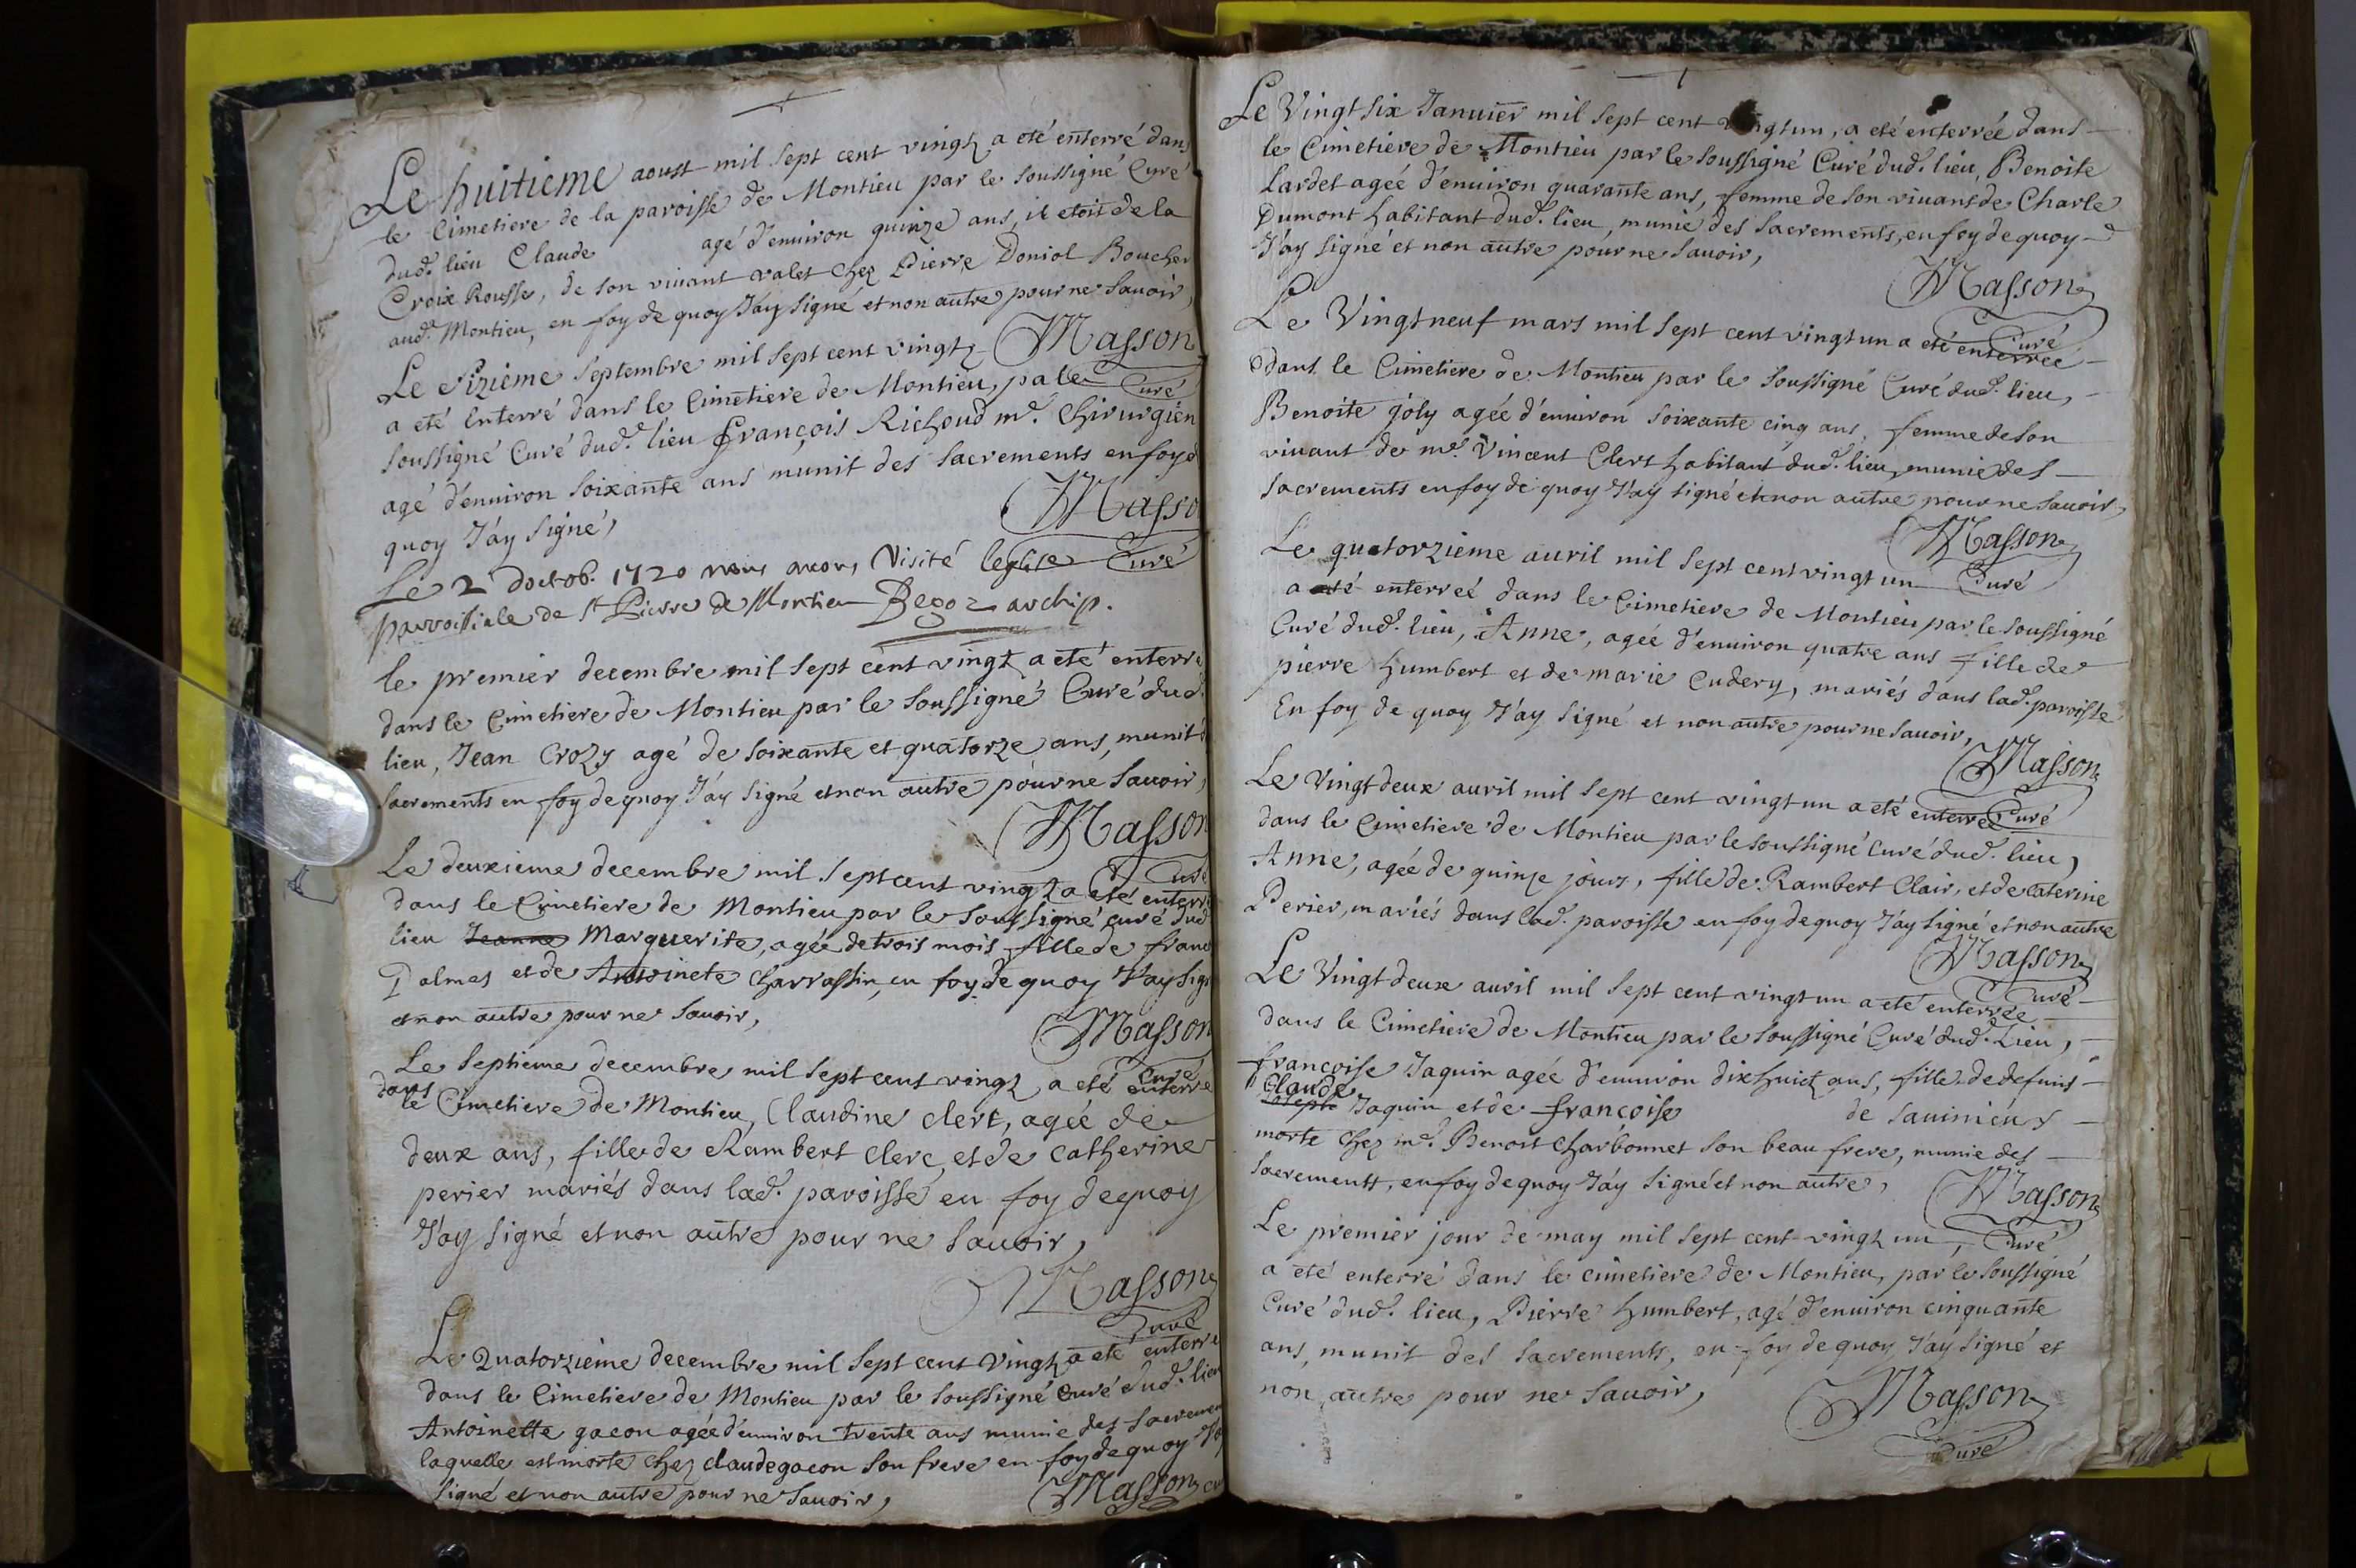 Le huitieme aoust mil sept cent vingt a eté enterré dans
le Cimetiere de la paroisse de Montieu par le soussigné Curé
dud. lieu Claude agé d'enuiron quinze ans, il etoit de la
Croix Rousse, de son viuant valet chez Pierre Doniol Boucher
aud. Montieu, en foy de quoy J'ay signé et non autre pour ne sauoir,
Masson
Curé
Le sizieme septembre mil sept cent vingt
a eté enterré dans le Cimetiere de Montieu, pa le
soussigné Curé dud. lieu François Richoud me. Chirurgien
agé d'enuiron soixante ans munit des sacrements en foy d
quoy J'ay signé,
Masso
Curé
Le 2 d'octob. 1720 nous auons Visité leglise
parroissiale de St Pierre de Montieu Begoz archip.
le premier decembre mil sept cent vingt a eté enterré
dans le Cimetiere de Montieu par le soussigné Curé dud.
lieu, Jean Crozy agé de soixante et quatorze ans, munit
sacrements en foy de quoy J'ay signé et non autre pour ne sauoir,
Masson
Curé
Le deuxieme decembre mil sept cent vingt a eté enterr
dans le Cimetiere de Montieu par le soussigné curé dud
lieu Jeanne Marguerite, agée de trois mois fille de franc
Dalmes et de Antoinete Charrassin, en foy de quoy J'ay sig
et non autre pour ne sauoir,
Masson
Curé
Le septieme decembre mil sept cent vingt, a eté enterré
dans
le Cimetiere de Montieu, Claudine clert, agée de
deux ans, fille de Rambert Clerc, et de Catherine
perier mariés dans lad. paroisse en foy de quoy
J'ay signé et non autre pour ne sauoir,
Masson
Curé
Le Quatorzieme decembre mil sept cent vingt a eté enterré
dans le Cimetiere de Montieu par le soussigné Curé dud. lieu
Antoinette gacon agée d'enuiron trente ans munie des sacremen
laquelle est morte chez claude gacon son frere en foy de quoy J'ay
signé et non autre pour ne sauoir,
Masson cu
Le Vingt six Januier mil sept cent vingt un, a eté enterrée dans
le Cimetiere de Montieu par le soussigné Curé dud. lieu, Benoite
Lardet agée d'enuiron quarante ans, femme de son viuant de Charle
Dumont habitant dud. lieu, munie des sacrements, en foy de quoy
J'ay signé et non autre pour ne sauoir,
Masson
Curé
Le Vingt neuf mars mil sept cent vingt un a eté enterrée
dans le Cimetiere de Montieu par le soussigné Curé dud. lieu,
Benoite joly agée d'enuiron soixante cinq ans, femme de son
viuant de me. Vincent Clert habitant dud. lieu, munie des
sacrements en foy de quoy J'ay signé et non autre pour ne sauoir,
Masson
Curé
Le quatorzieme auril mil sept cent vingt un
a eté enterreé dans le Cimetiere de Montieu par le soussigné
Curé dud. lieu, Anne, agée d'enuiron quatre ans fille de
pierre humbert et de marie Cudery, mariés dans lad. paroisse
En foy de quoy J'ay signé et non autre pour ne sauoir,
Masson
Curé
Le Vingt deux auril mil sept cent vingt un a eté enterrée
dans le Cimetiere de Montieu par le soussigné Curé dud. lieu,
Anne, agée de quinze jours, fille de Rambert Clair, et de Caterine
Perier, mariés dans lad. paroisse en foy de quoy J'ay signé et non autre
Masson
Curé
Le Vingt deux auril mil sept cent vingt un a eté enterrée
dans le Cimetiere de Montieu par le soussigné Curé dud. Lieu,
françoise Jaquin agée d'enuiron dix huict ans, fille de defunis
Claude
Joseph Jaquin et de françoise de sauinieux
morte chez me. Benoit Charbonnet son beau frere, munie des
sacrements, en foy de quoy J'ay signé et non autre,
Masson
Curé
Le premier jour de may mil sept cent vingt un,
a eté enterré dans le cimetiere de Montieu, par le soussigné
Curé dud. lieu, Pierre humbert, agé d'enuiron cinquante
ans, munit des sacrements, en foy de quoy J'ay signé et
non autre pour ne sauoir,
Masson
Curé